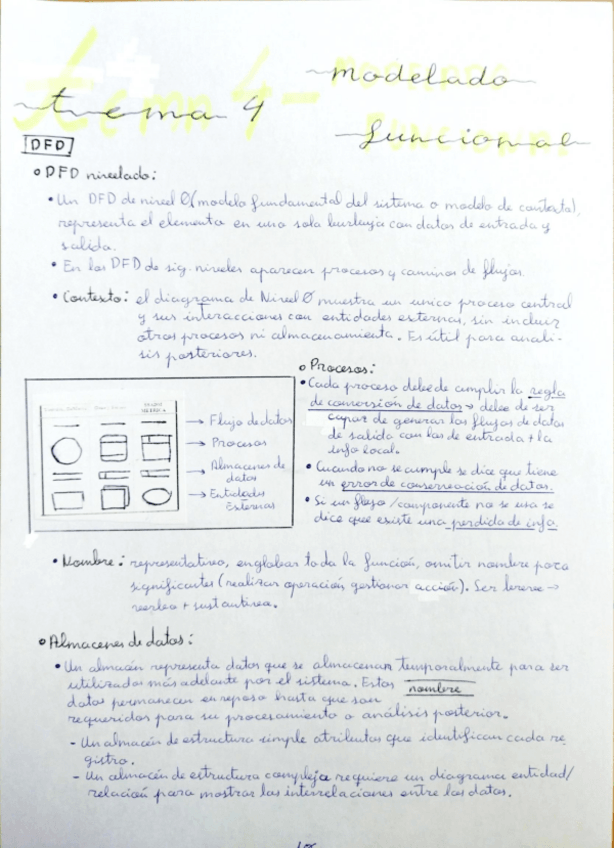 tema 4
modelado
funcional
DFD
o DFD nivelado:
• Un DFD de nivel 0 (modelo fundamental del sistema o modelo de contexto),
representa el elemento en una sola burbuja con datos de entrada y
salida.
• En los DFD de sig. niveles aparecen procesos y caminos de flujos
• Contexto: el diagrama de Nivel 0 muestra un unico proceso central
y sus interacciones con entidades externas, sin incluir
otros procesos ni almacenamiento. Es útil para análi-
sis posteriores.
→ Flujo de datos
→ Procesos
→ Almacenes de
datos
→ Entidades
Externas
o Procesos:
• Cada proceso debe de cumplir la regla
de conversión de datos → debe de ser
capaz de generar los flujos de datos
de salida con los de entrada + la
info local.
• Cuando no se cumple se dice que tiene
un error de conservación de datos.
• Si un flujo/componente no se usa se
dice que existe una perdida de info.
• Nombre: representativo, englobar toda la función, omitir nombre poco
significantes (realizar operación, gestionar acción). Ser breve →
verbo + sustantivo.
o Almacenes de datos:
• Un almacén representa datos que se almacenan temporalmente para ser
utilizados más adelante por el sistema. Estos nombre
datos permanecen en reposo hasta que son
requeridos para su procesamiento o análisis posterior.
- Un almacén de estructura simple atributos que identifican cada re
gistro.
- Un almacén de estructura compleja requiere un diagrama entidad/
relación para mostrar las interrelaciones entre los datos.